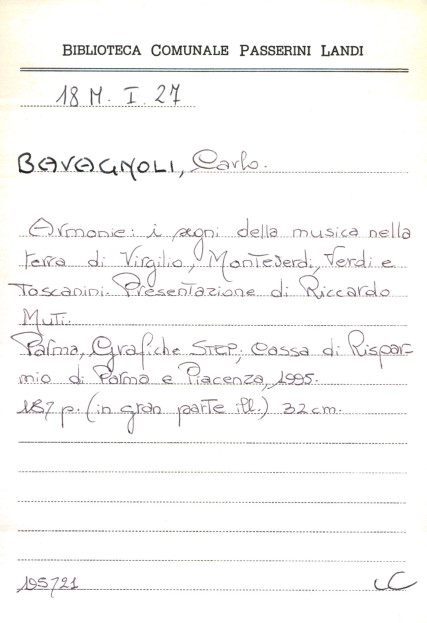 BIBLIOTECA COMUNALE PASSERINI LANDI
18 M. I. 27
BAVAGNOLI, Carlo.
Armonie: i segni della musica nella
terra di Virgilio, Monteverdi, Verdi e
Toscanini. Presentazione di Riccardo
Muti.
Parma, Grafiche STEP; Cassa di Rispar-
mio di Parma e Piacenza, 1995.
187 p. (in gran parte ill.) 32 cm.
195721